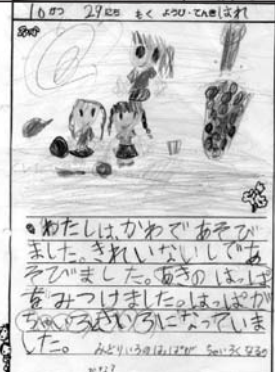 10がつ 29にち もくようび・てんき はれ
わたしは、かわであそび
ました。きれいないしであ
そびました。あきのはっぱ
をみつけました。はっぱが
ちゃいろきいろになっていま
した。
みどりいろのはっぱが ちゃいろくなるの